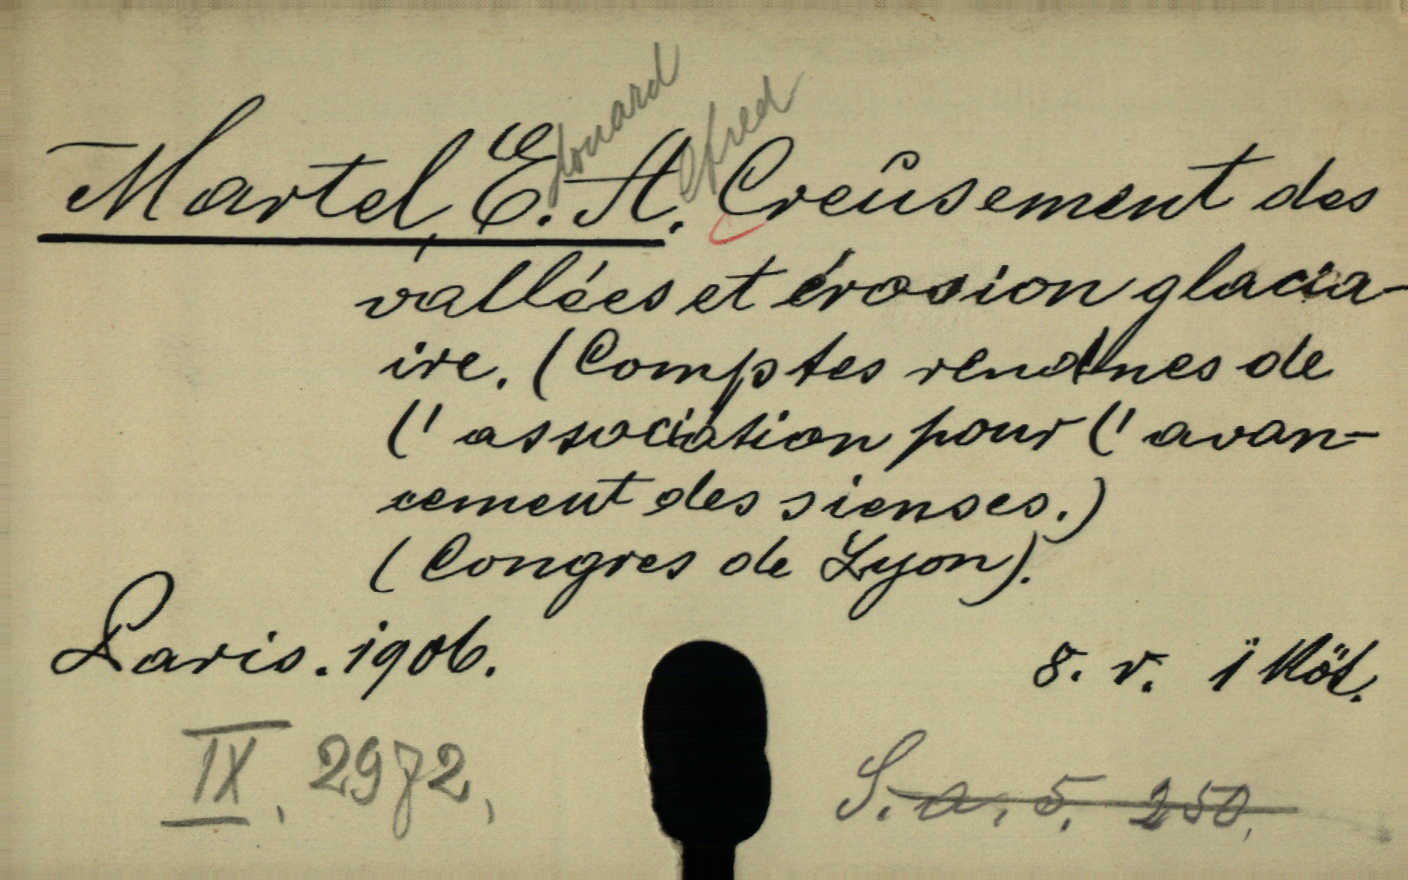 Martel, E.douard A.lfred Creûsement des
vallées et érosion glacia-
ire. (Comptes rendues de
l' association pour l' avan-
cement des sienses.)
(Congres de Lyon).
Paris. 1906. 8. r. 1 Köt.
IX, 2972,
S. a. 5. 250.